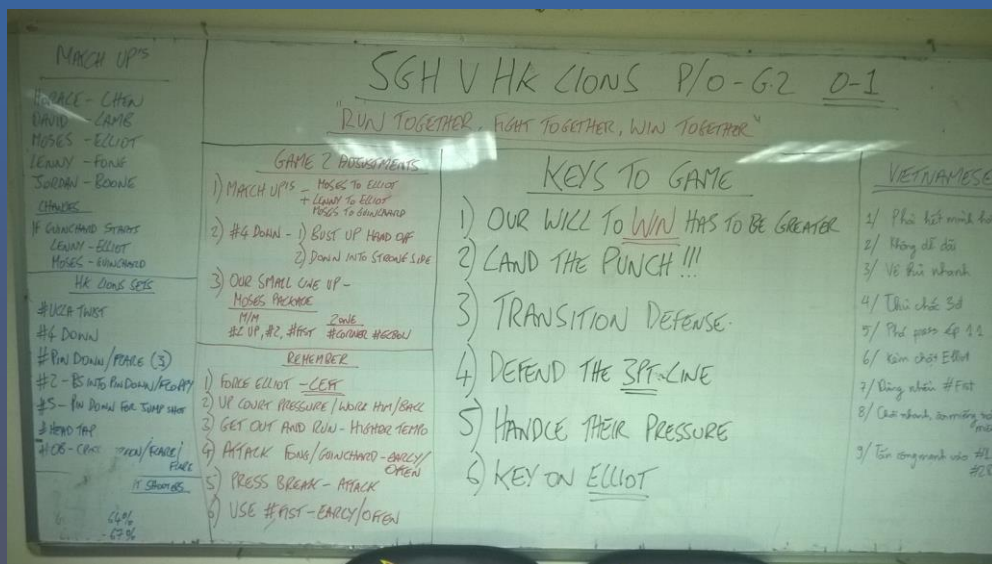 MATCH UP'S
HORACE - CHEN
DAVID - LAMB
MOSES - ELLIOT
LENNY - FONG
JORDAN - BOONE
CHANGES
IF GUINCHARD STARTS
LENNY - ELLIOT
MOSES - GUINCHARD
HK LIONS SETS
#UCLA TWIST
#4 DOWN
#PIN DOWN/FLARE (3)
#2 - BS INTO PIN DOWN/FLOPPY
#5 - PIN DOWN FOR JUMP SHOT
#HEAD TAP
#OB -
FLARE
FT SHOOTERS
64%
- 67%
SGH V HK LIONS P/O - G.2 0-1
"RUN TOGETHER, FIGHT TOGETHER, WIN TOGETHER"
GAME 2 ADJUSTMENTS
1) MATCH UP'S - MOSES TO ELLIOT
+ LENNY TO ELLIOT
MOSES TO GUINCHARD
2) #4 DOWN - 1) BUST UP HAND OFF
2) DOWN INTO STRONG SIDE
3) OUR SMALL LINE UP -
MOSES PACKAGE
M/M ZONE
#2 UP, #2, #FIST #CORNER #ELBOW
REMEMBER
1) FORCE ELLIOT - LEFT
2) UP COURT PRESSURE / WORK HIM/BALL
3) GET OUT AND RUN - HIGHER TEMPO
4) ATTACK FONG/GUINCHARD - EARLY/
OFTEN
5) PRESS BREAK - ATTACK
6) USE #FIST - EARLY/OFTEN
KEYS TO GAME
1) OUR WILL TO WIN HAS TO BE GREATER
2) LAND THE PUNCH!!!
3) TRANSITION DEFENSE.
4) DEFEND THE 3PT-LINE
5) HANDLE THEIR PRESSURE
6) KEY ON ELLIOT
VIETNAMESE
1/ Phải hết mình
2/ Không dễ dãi
3/ Về thủ nhanh
4/ Thủ chắc 3đ
5/ Phá press
6/ Kèm chặt Elliot
7/ Dùng nhiều #Fist
8/ Chơi nhanh,
9/ Tấn công mạnh vào